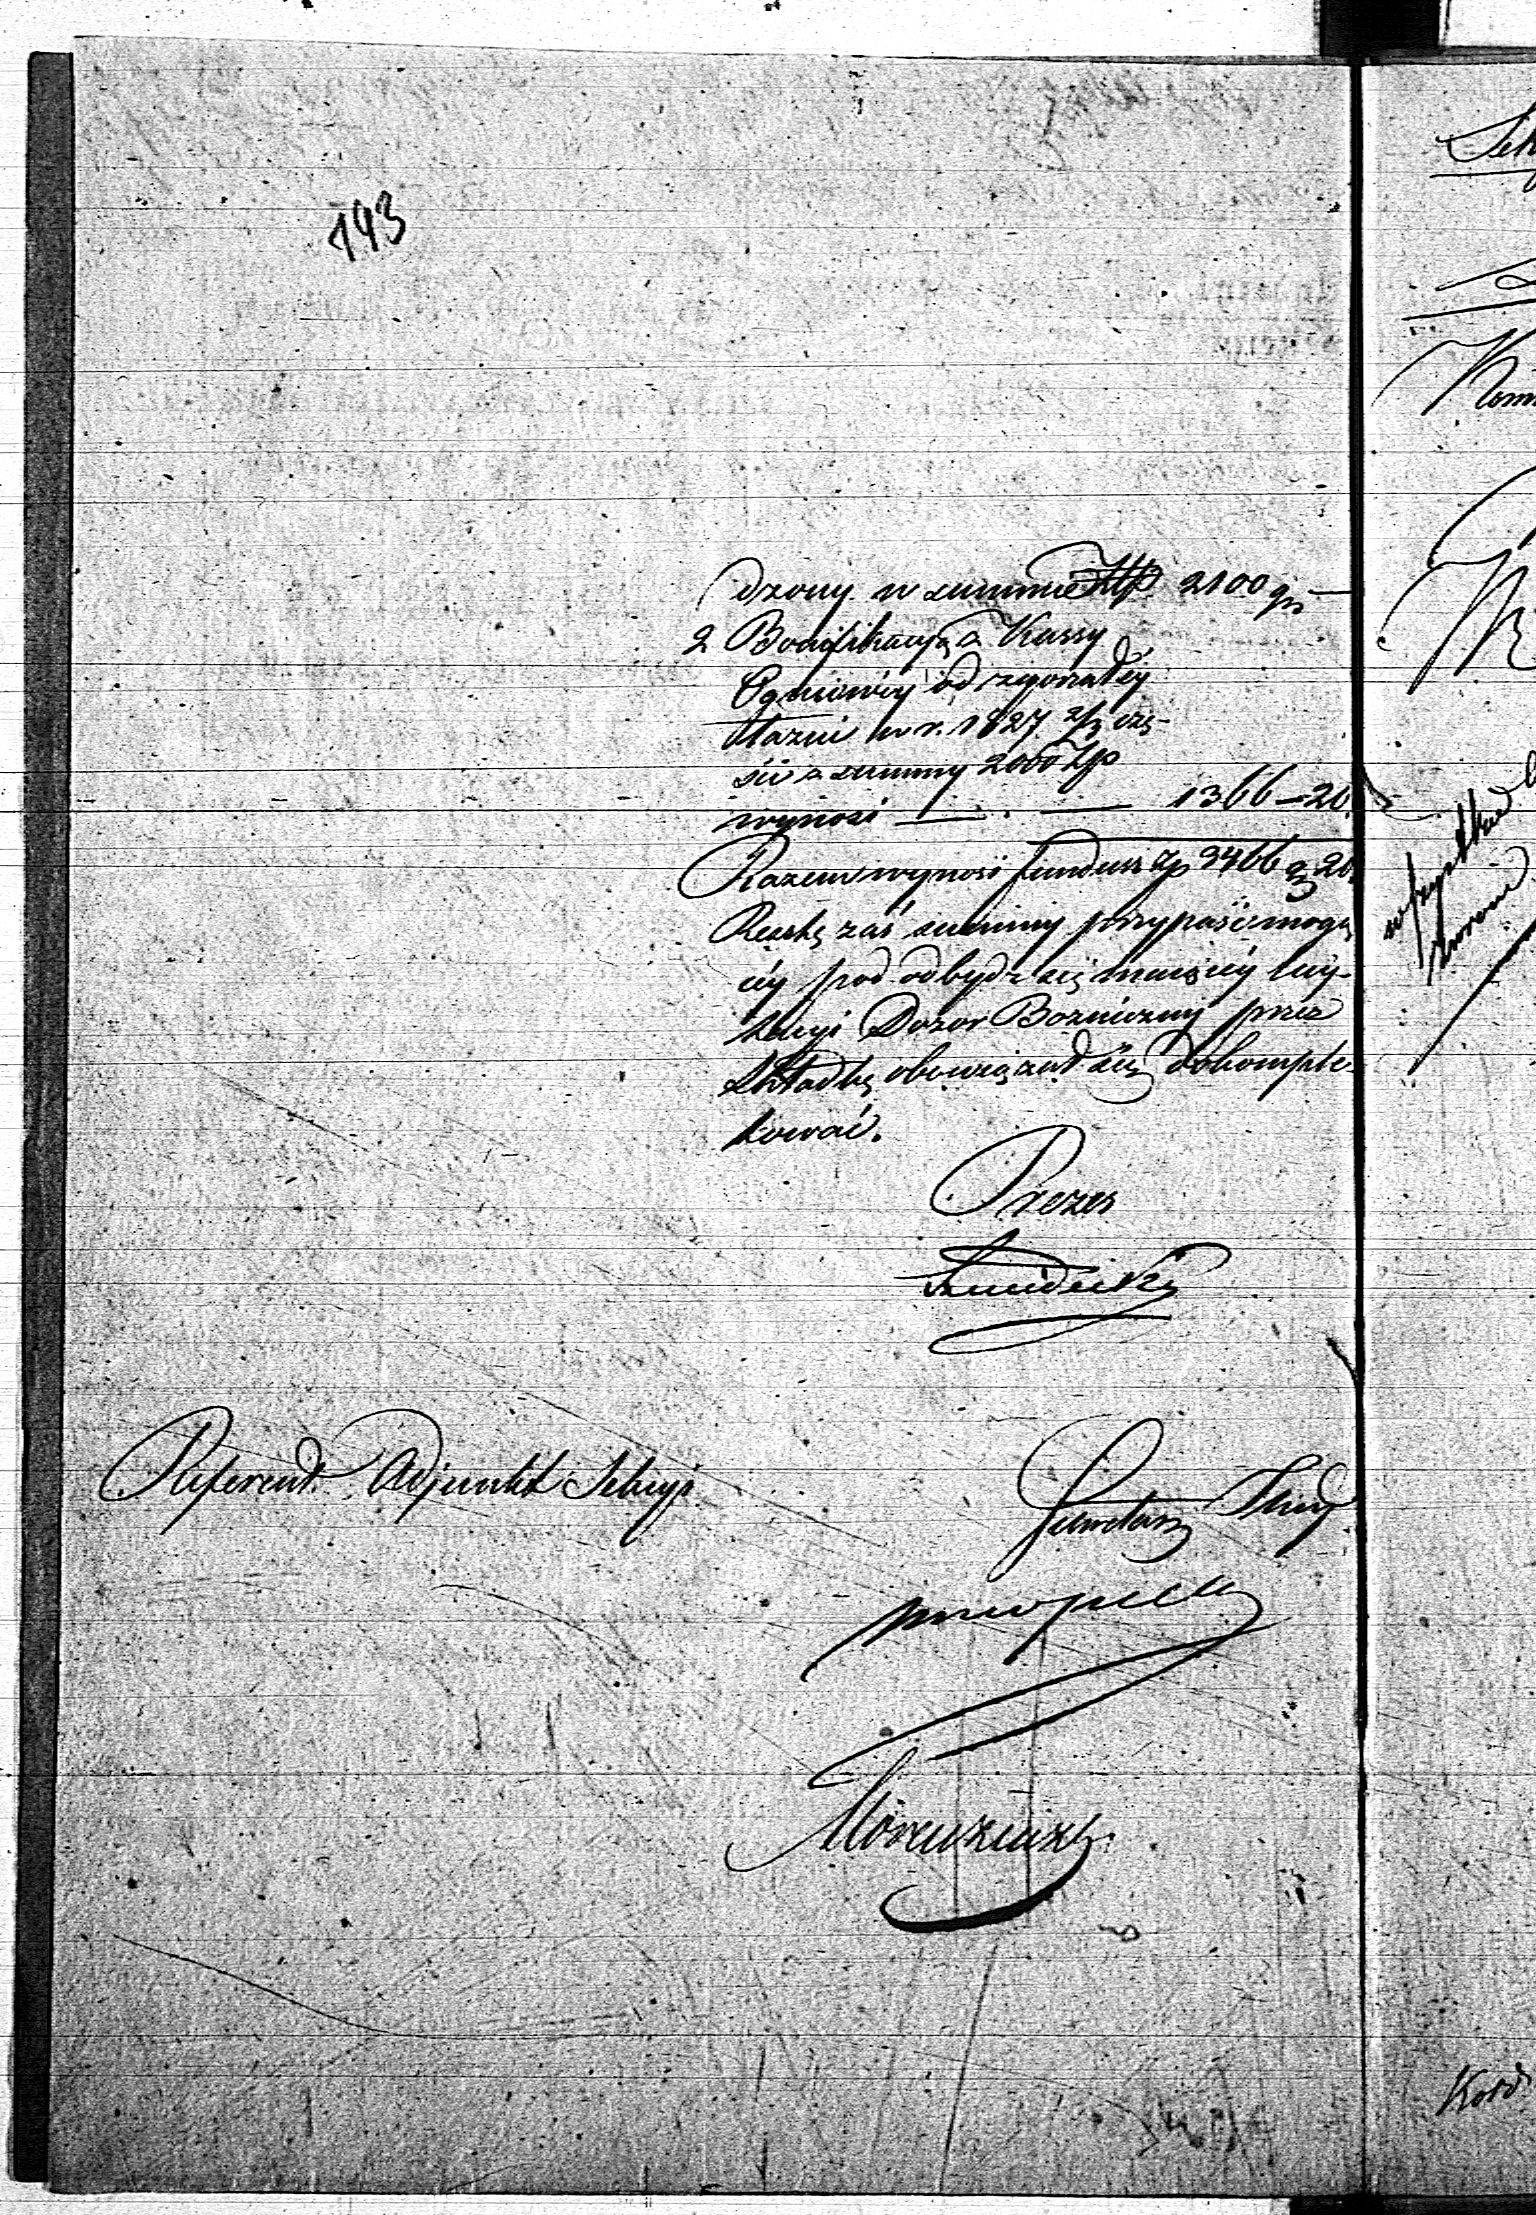 193
dzony w summie Złp 2100 gr —
2 Bonifikacyą z Kassy
Ogniowey od zgorzałey
łazni w r. 1827 2/3 czę-
ści z summy 2000 Złp
wynosi — . — 1366 — 20.
Razem wynosi fundusz Zp 3466 g 20.
Resztę zaś summy przypaść mogą
céy pod odbydź się maiącéy licy-
tacyi Dozor Bozniczny przez
składkę obowiązał się dokomple-
tować.
Prezes
Referent Adjunkt Sekcyi
Sekretarz